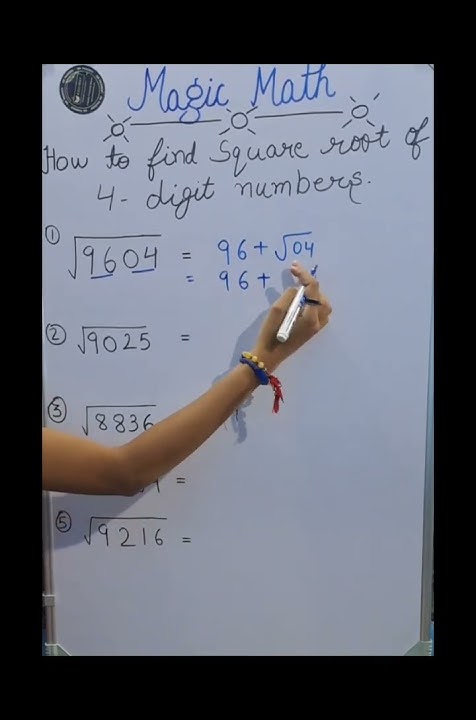 Magic Math
How to find Square root of
4- digit numbers.
① √9604 = 96 + √04
= 96 +
② √9025 =
③ √8836
=
⑤ √9216 =